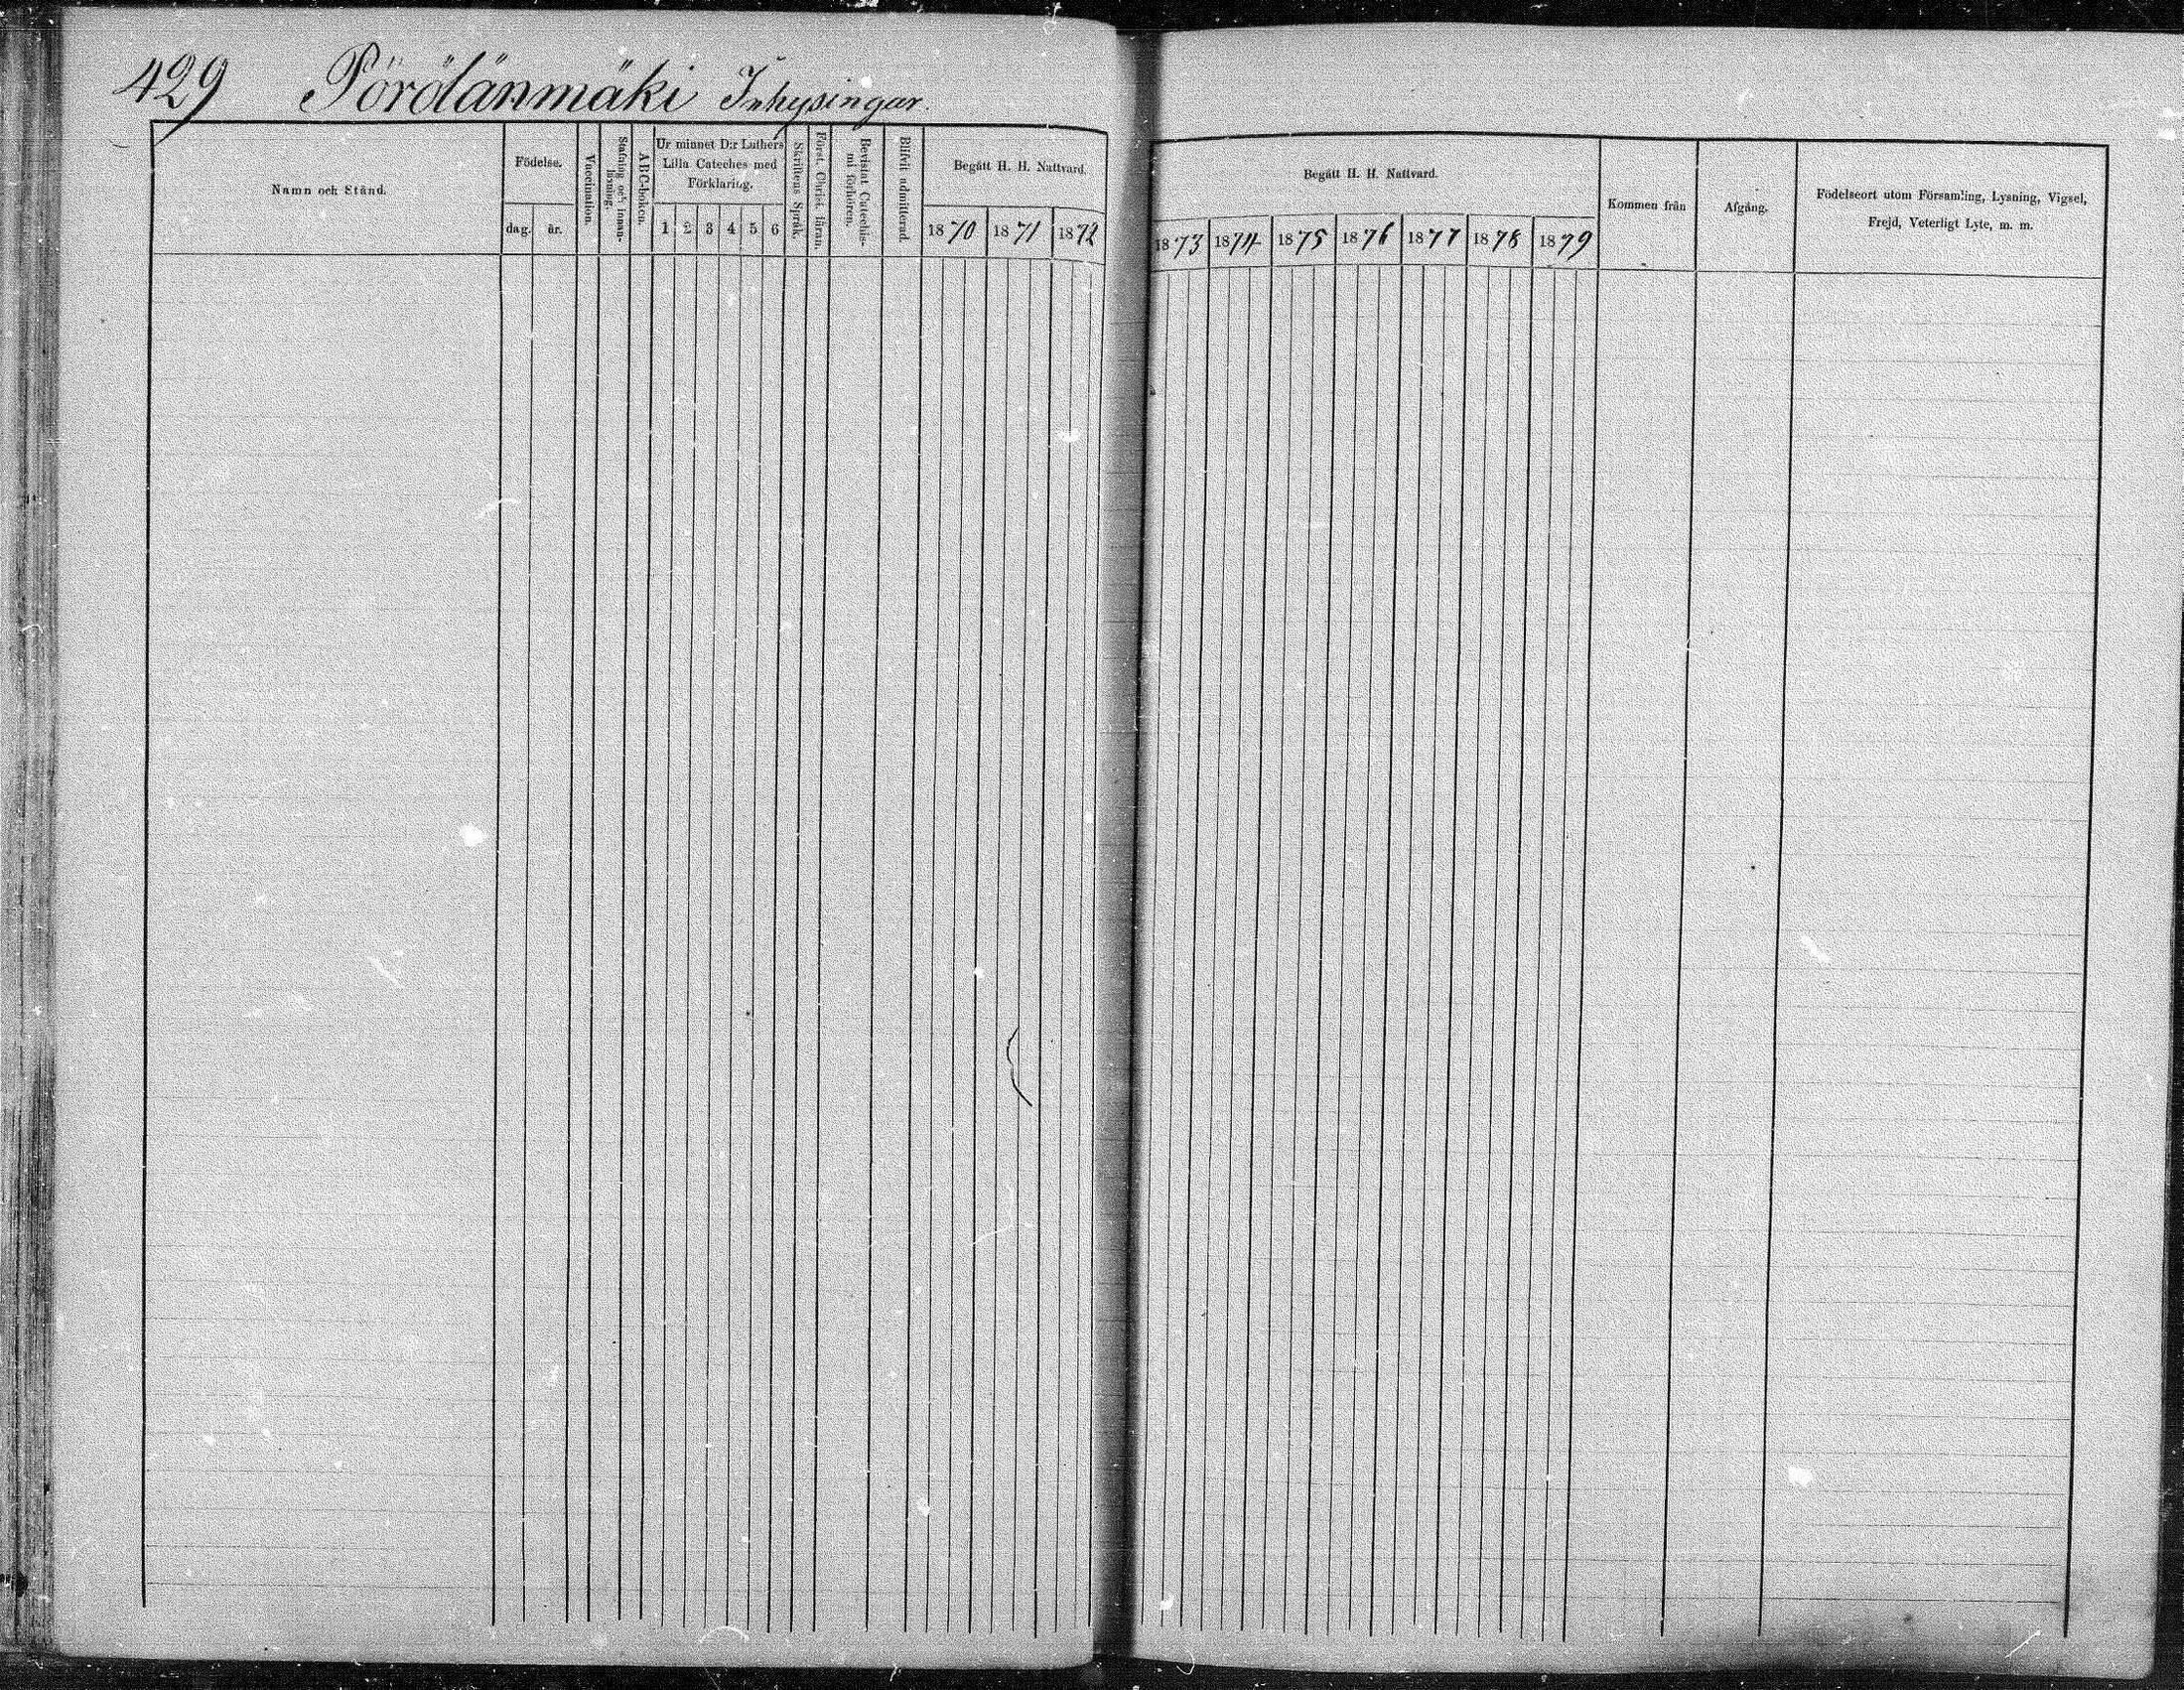 429 Pördänmäki Inhysingar.
Namn och Stånd.
Födelse.
dag. år.
Vaccination.
Stafning och Innanläsning.
ABC-boken.
Ur minnet D:r Luthers
Lilla Cateches med
Förklaring.
1 2 3 4 5 6
Skriftens Språk.
Först. Christ. läran.
Bevistat Catechismi förhören.
Blifvit admitterad.
Begått H. H. Nattvard.
1870 1871 1872
Begått H. H. Nattvard.
1873 1874 1875 1876 1877 1878 1879
Kommen från
Afgång.
Födelseort utom Församling, Lysning, Vigsel,
Frejd, Veterligt Lyte, m. m.